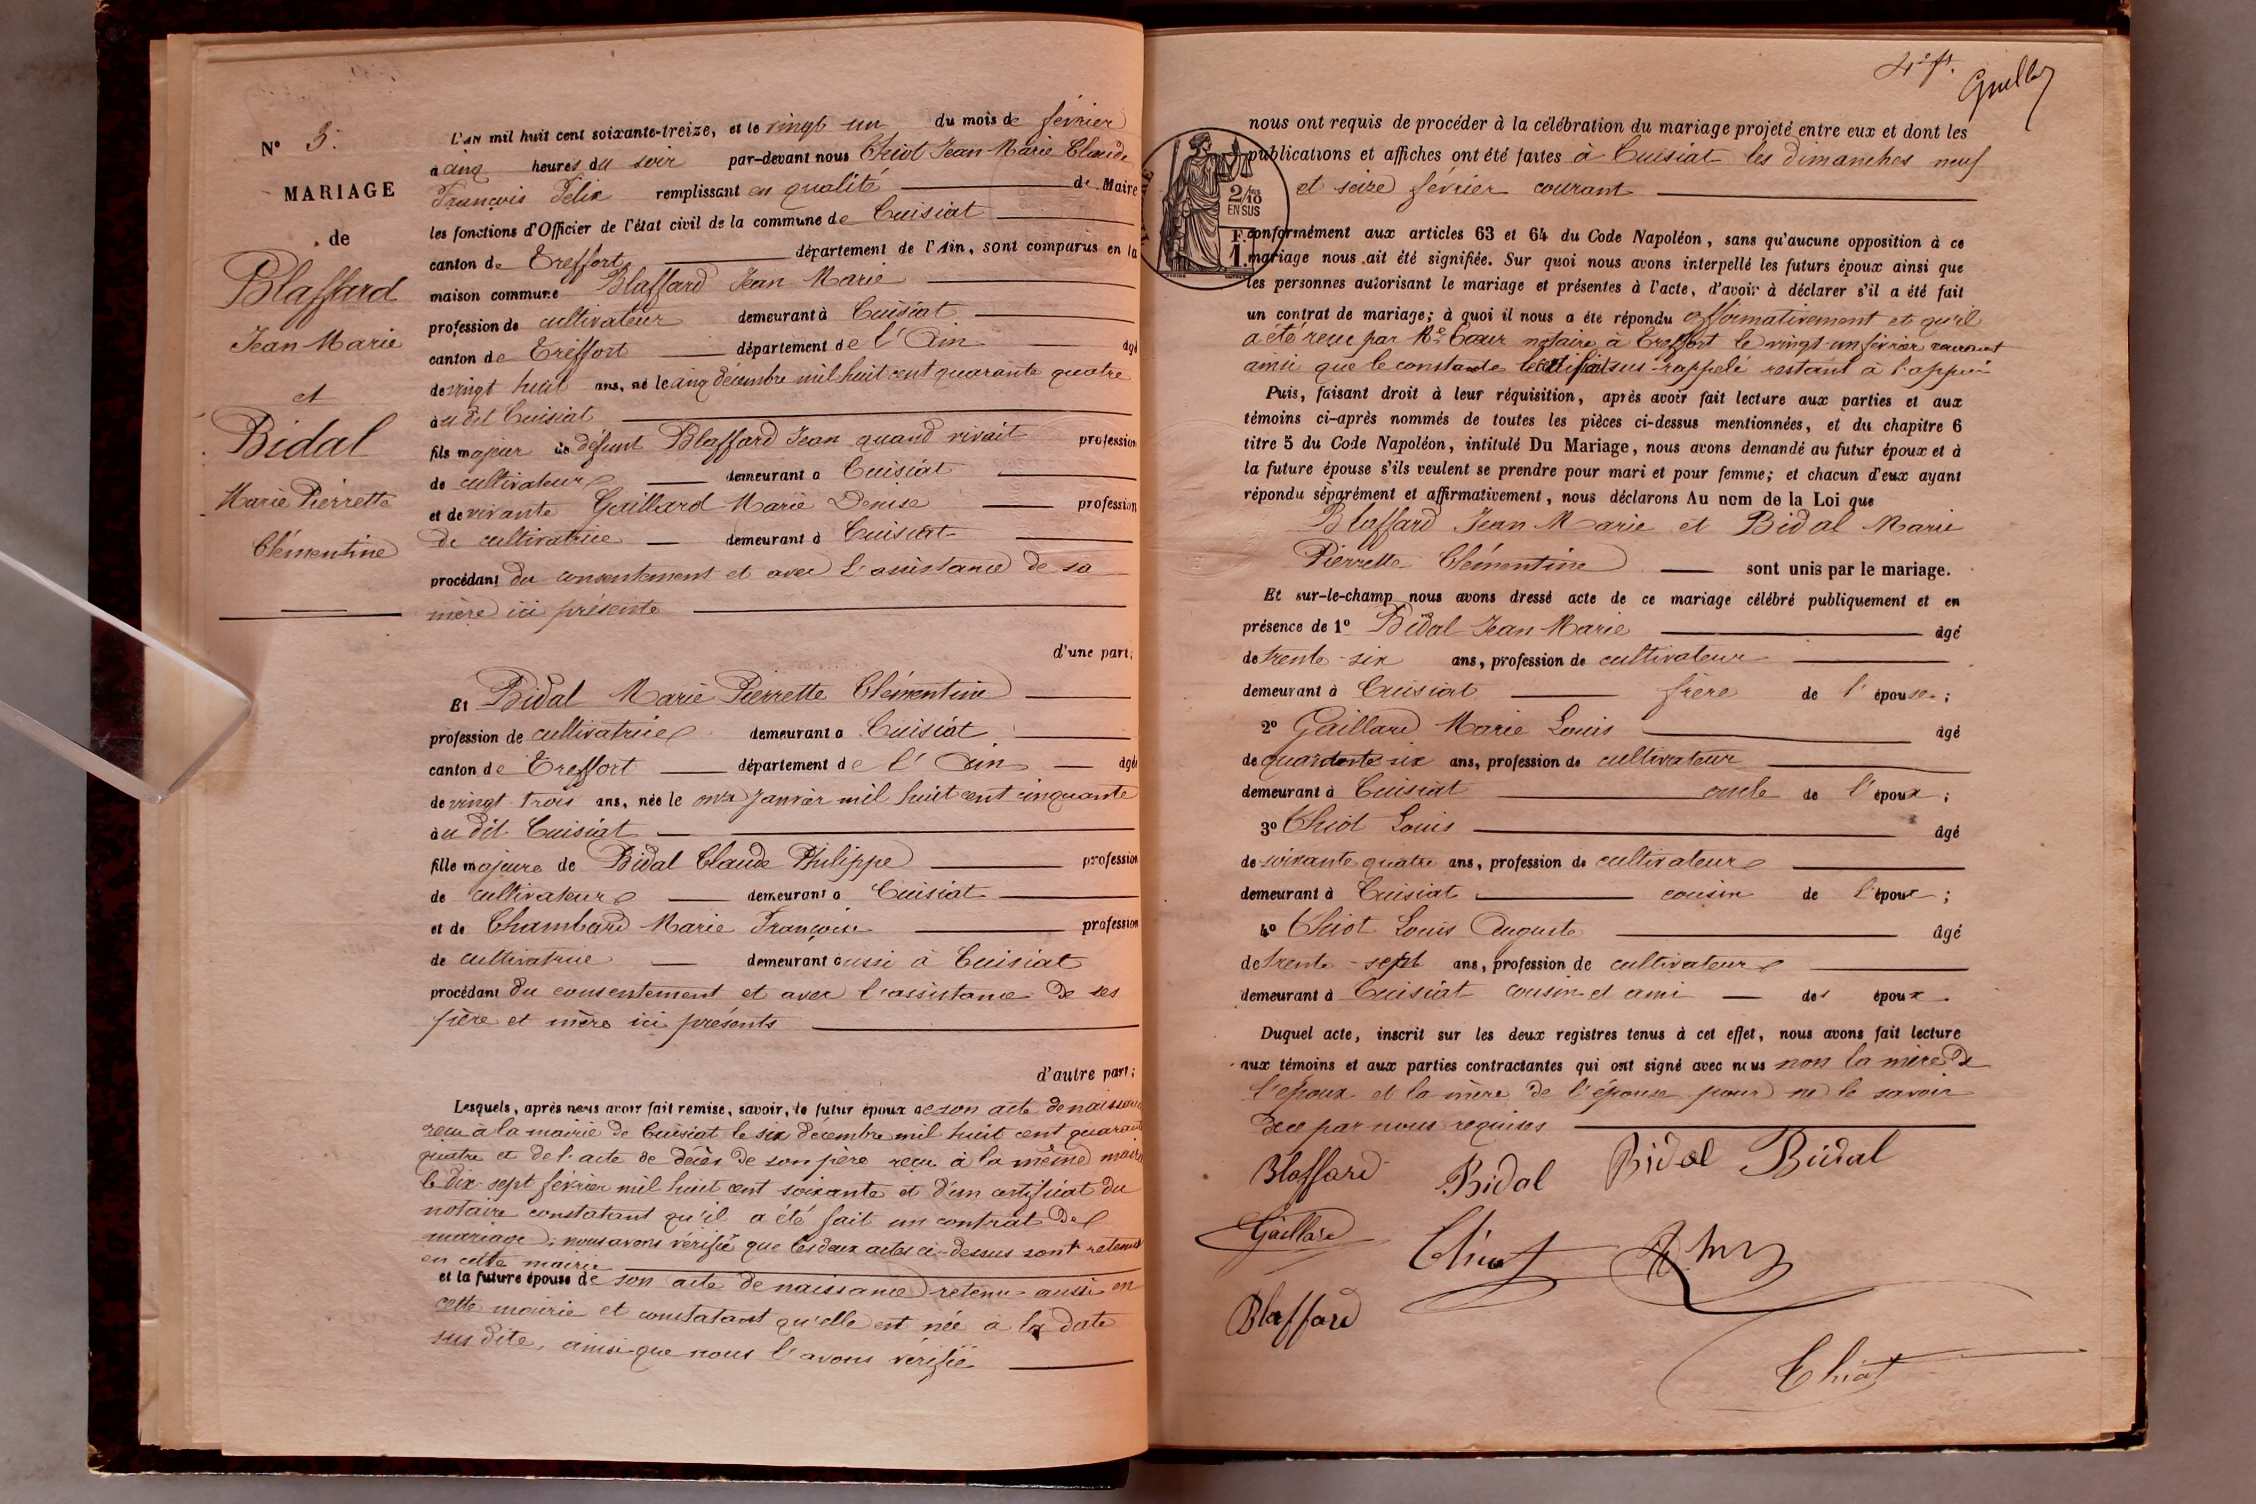 N° 3.
MARIAGE
de
Blaffard
Jean Marie
et
Bidal
Marie Pierrette
Clémentine
L'an mil huit cent soixante-treize, et le vingt un du mois de février
à cinq heures du soir par-devant nous Chiot Jean Marie Claude
François Félix remplissant en qualité de Maire
les fonctions d'Officier de l'état civil de la commune de Cuisiat
canton de Treffort département de l'Ain, sont comparus en la
maison commune Blaffard Jean Marie
profession de cultivateur demeurant à Cuisiat
canton de Treffort département de l'Ain âgé
de vingt huit ans, né le cinq décembre mil huit cent quarante quatre
à u dit Cuisiat
fils majeur de défunt Blaffard Jean quand vivait profession
de cultivateur demeurant à Cuisiat
et de vivante Gaillard Marie Denise profession
de cultivatrice demeurant à Cuisiat
procédant du consentement et avec l'assistance de sa
mère ici présente
d'une part;
Et Bidal Marie Pierrette Clémentine
profession de cultivatrice demeurant à Cuisiat
canton de Treffort département de l'Ain âgée
de vingt trois ans, née le onze janvier mil huit cent cinquante
à u dit Cuisiat
fille majeure de Bidal Claude Philippe profession
de cultivateur demeurant à Cuisiat
et de Chambard Marie Françoise profession
de cultivatrice demeurant aussi à Cuisiat
procédant du consentement et avec l'assistance de ses
père et mère ici présents
d'autre part;
Lesquels, après nous avoir fait remise, savoir, le futur époux de son acte de naissance
reçu à la mairie de Cuisiat le six décembre mil huit cent quarante
quatre et de l'acte de décès de son père reçu à la même mairie
le dix-sept février mil huit cent soixante et d'un certificat du
notaire constatant qu'il a été fait un contrat de
mariage; nous avons vérifié que les deux actes ci-dessus sont retenus
en cette mairie
et la future épouse de son acte de naissance retenu aussi en
cette mairie et constatant qu'elle est née à la date
sus dite, ainsi que nous l'avons vérifié
nous ont requis de procéder à la célébration du mariage projeté entre eux et dont les
publications et affiches ont été faites à Cuisiat les dimanches neuf
et seize février courant
2/10
EN SUS
F.
1.
conformément aux articles 63 et 64 du Code Napoléon, sans qu'aucune opposition à ce
mariage nous ait été signifiée. Sur quoi nous avons interpellé les futurs époux ainsi que
les personnes autorisant le mariage et présentes à l'acte, d'avoir à déclarer s'il a été fait
un contrat de mariage; à quoi il nous a été répondu affirmativement et qu'il
a été reçu par Me Cœur notaire à Treffort le vingt-un février courant
ainsi que le constate le certificat sus-rappelé restant à l'appui
Puis, faisant droit à leur réquisition, après avoir fait lecture aux parties et aux
témoins ci-après nommés de toutes les pièces ci-dessus mentionnées, et du chapitre 6
titre 5 du Code Napoléon, intitulé Du Mariage, nous avons demandé au futur époux et à
la future épouse s'ils veulent se prendre pour mari et pour femme; et chacun d'eux ayant
répondu séparément et affirmativement, nous déclarons Au nom de la Loi que
Blaffard Jean Marie et Bidal Marie
Pierrette Clémentine sont unis par le mariage.
Et sur-le-champ nous avons dressé acte de ce mariage célébré publiquement et en
présence de 1° Bidal Jean Marie âgé
de trente-six ans, profession de cultivateur
demeurant à Cuisiat frère de l'épouse;
2° Gaillard Marie Louis âgé
de quarante-six ans, profession de cultivateur
demeurant à Cuisiat oncle de l'époux;
3° Chiot Louis âgé
de soixante quatre ans, profession de cultivateur
demeurant à Cuisiat cousin de l'époux;
4° Chiot Louis Auguste âgé
de trente-sept ans, profession de cultivateur
demeurant à Cuisiat cousin et ami des époux.
Duquel acte, inscrit sur les deux registres tenus à cet effet, nous avons fait lecture
aux témoins et aux parties contractantes qui ont signé avec nous non la mère de
l'époux et la mère de l'épouse pour ne le savoir
de ce par nous requises
Blaffard Bidal Bidal Bidal
Gaillard Chiot
Blaffard
Chiot